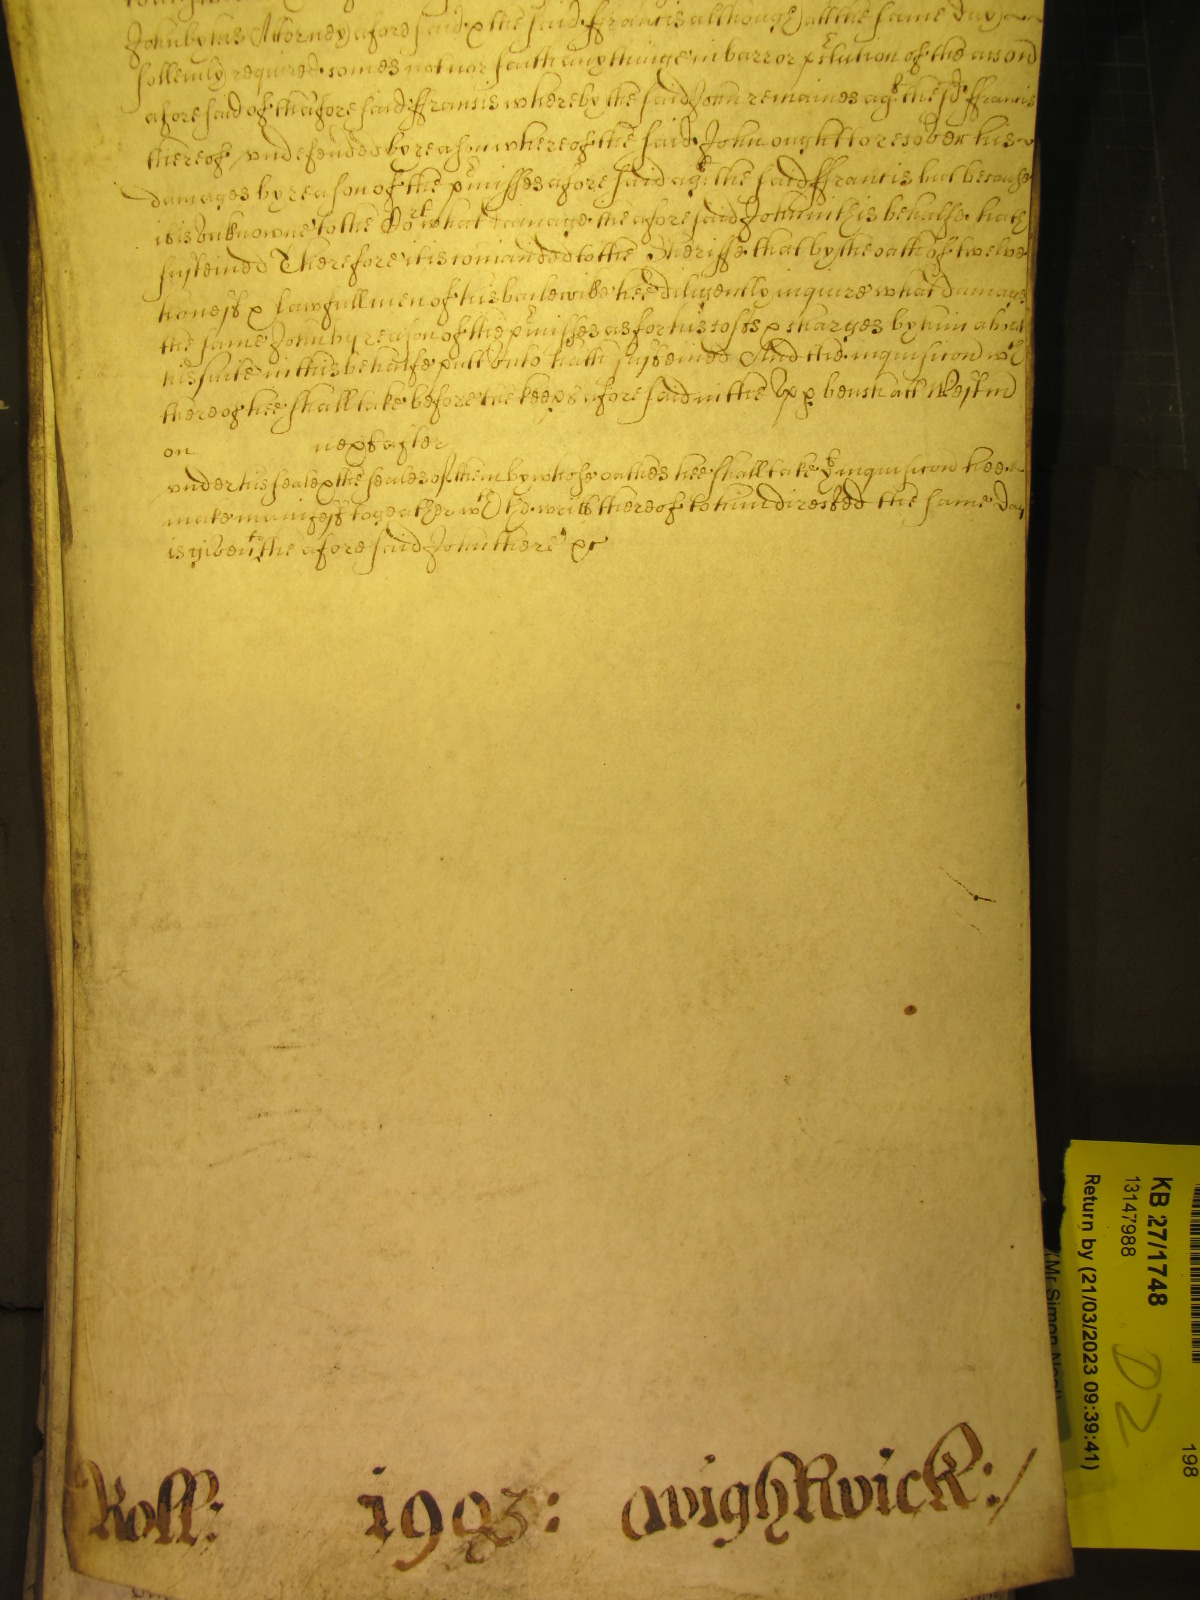 John by his Attorney aforesaid & the said ffrancis although all the same day
sollemly required comes not nor saith any thinge in barr or pclution of the accōn
aforesaid of thaforesaid ffrancis whereby the said John remaines agt the sd ffrancis
thereof undefended by reason whereof the said John ought to recover his
damages by reason of the pmisses aforesaid agt the said ffrancis but because
it is unknowne to the Cort what damage the aforesaid John in this behalfe hath
susteined Therefore it is comanded to the Sheriffe that by the oath of twelve
honest & lawfull men of his bailewike hee diligently inquire what damage
the same John by reason of the pmisses as for his costs & charges by him about
his suite in this behalfe putt unto hath susteined And the inquisicon wch
thereof hee shall take before the keeps aforesaid in the Upp bench att Westm
on next after
under his seale & the seales of them by whose oathes hee shall take yt inquisicon hee
make manifest togeather wth the writt thereof to him directed the same day
is given to the aforesaid John there &c
Roll: 1903: WighkWick:/
KB 27/1748
13147988
Return by (21/03/2023 09:39:41)
D2
198